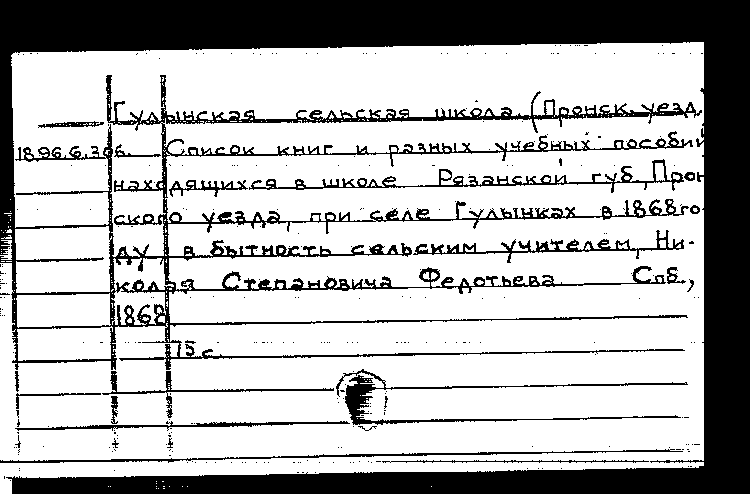 Гулынская сельская школа (Пронск. уезд.
18.96.6.306. Список книг и разных учебных пособий
находящихся в школе Рязанской губ, Прон
ского уезда, при селе Гулынках в 1868 го-
ду, в бытность сельским учителем, Ни-
колая Степановича Федотьева Спб.,
1868
15 с